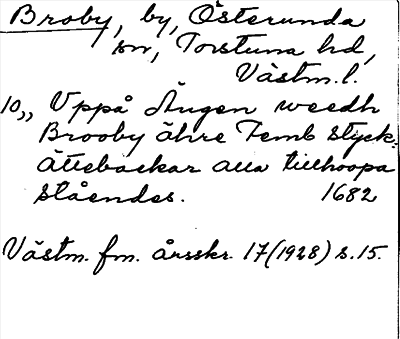 Broby, by, Österunda
sn, Torstuna hd,
Västm. l.
10,, Uppå Ängen weedh
Brooby ähre Femb styck:
Ättebackar alla tillhoopa
ståendes. 1682
Västm. fm. årsskr. 17 (1928) s. 15.